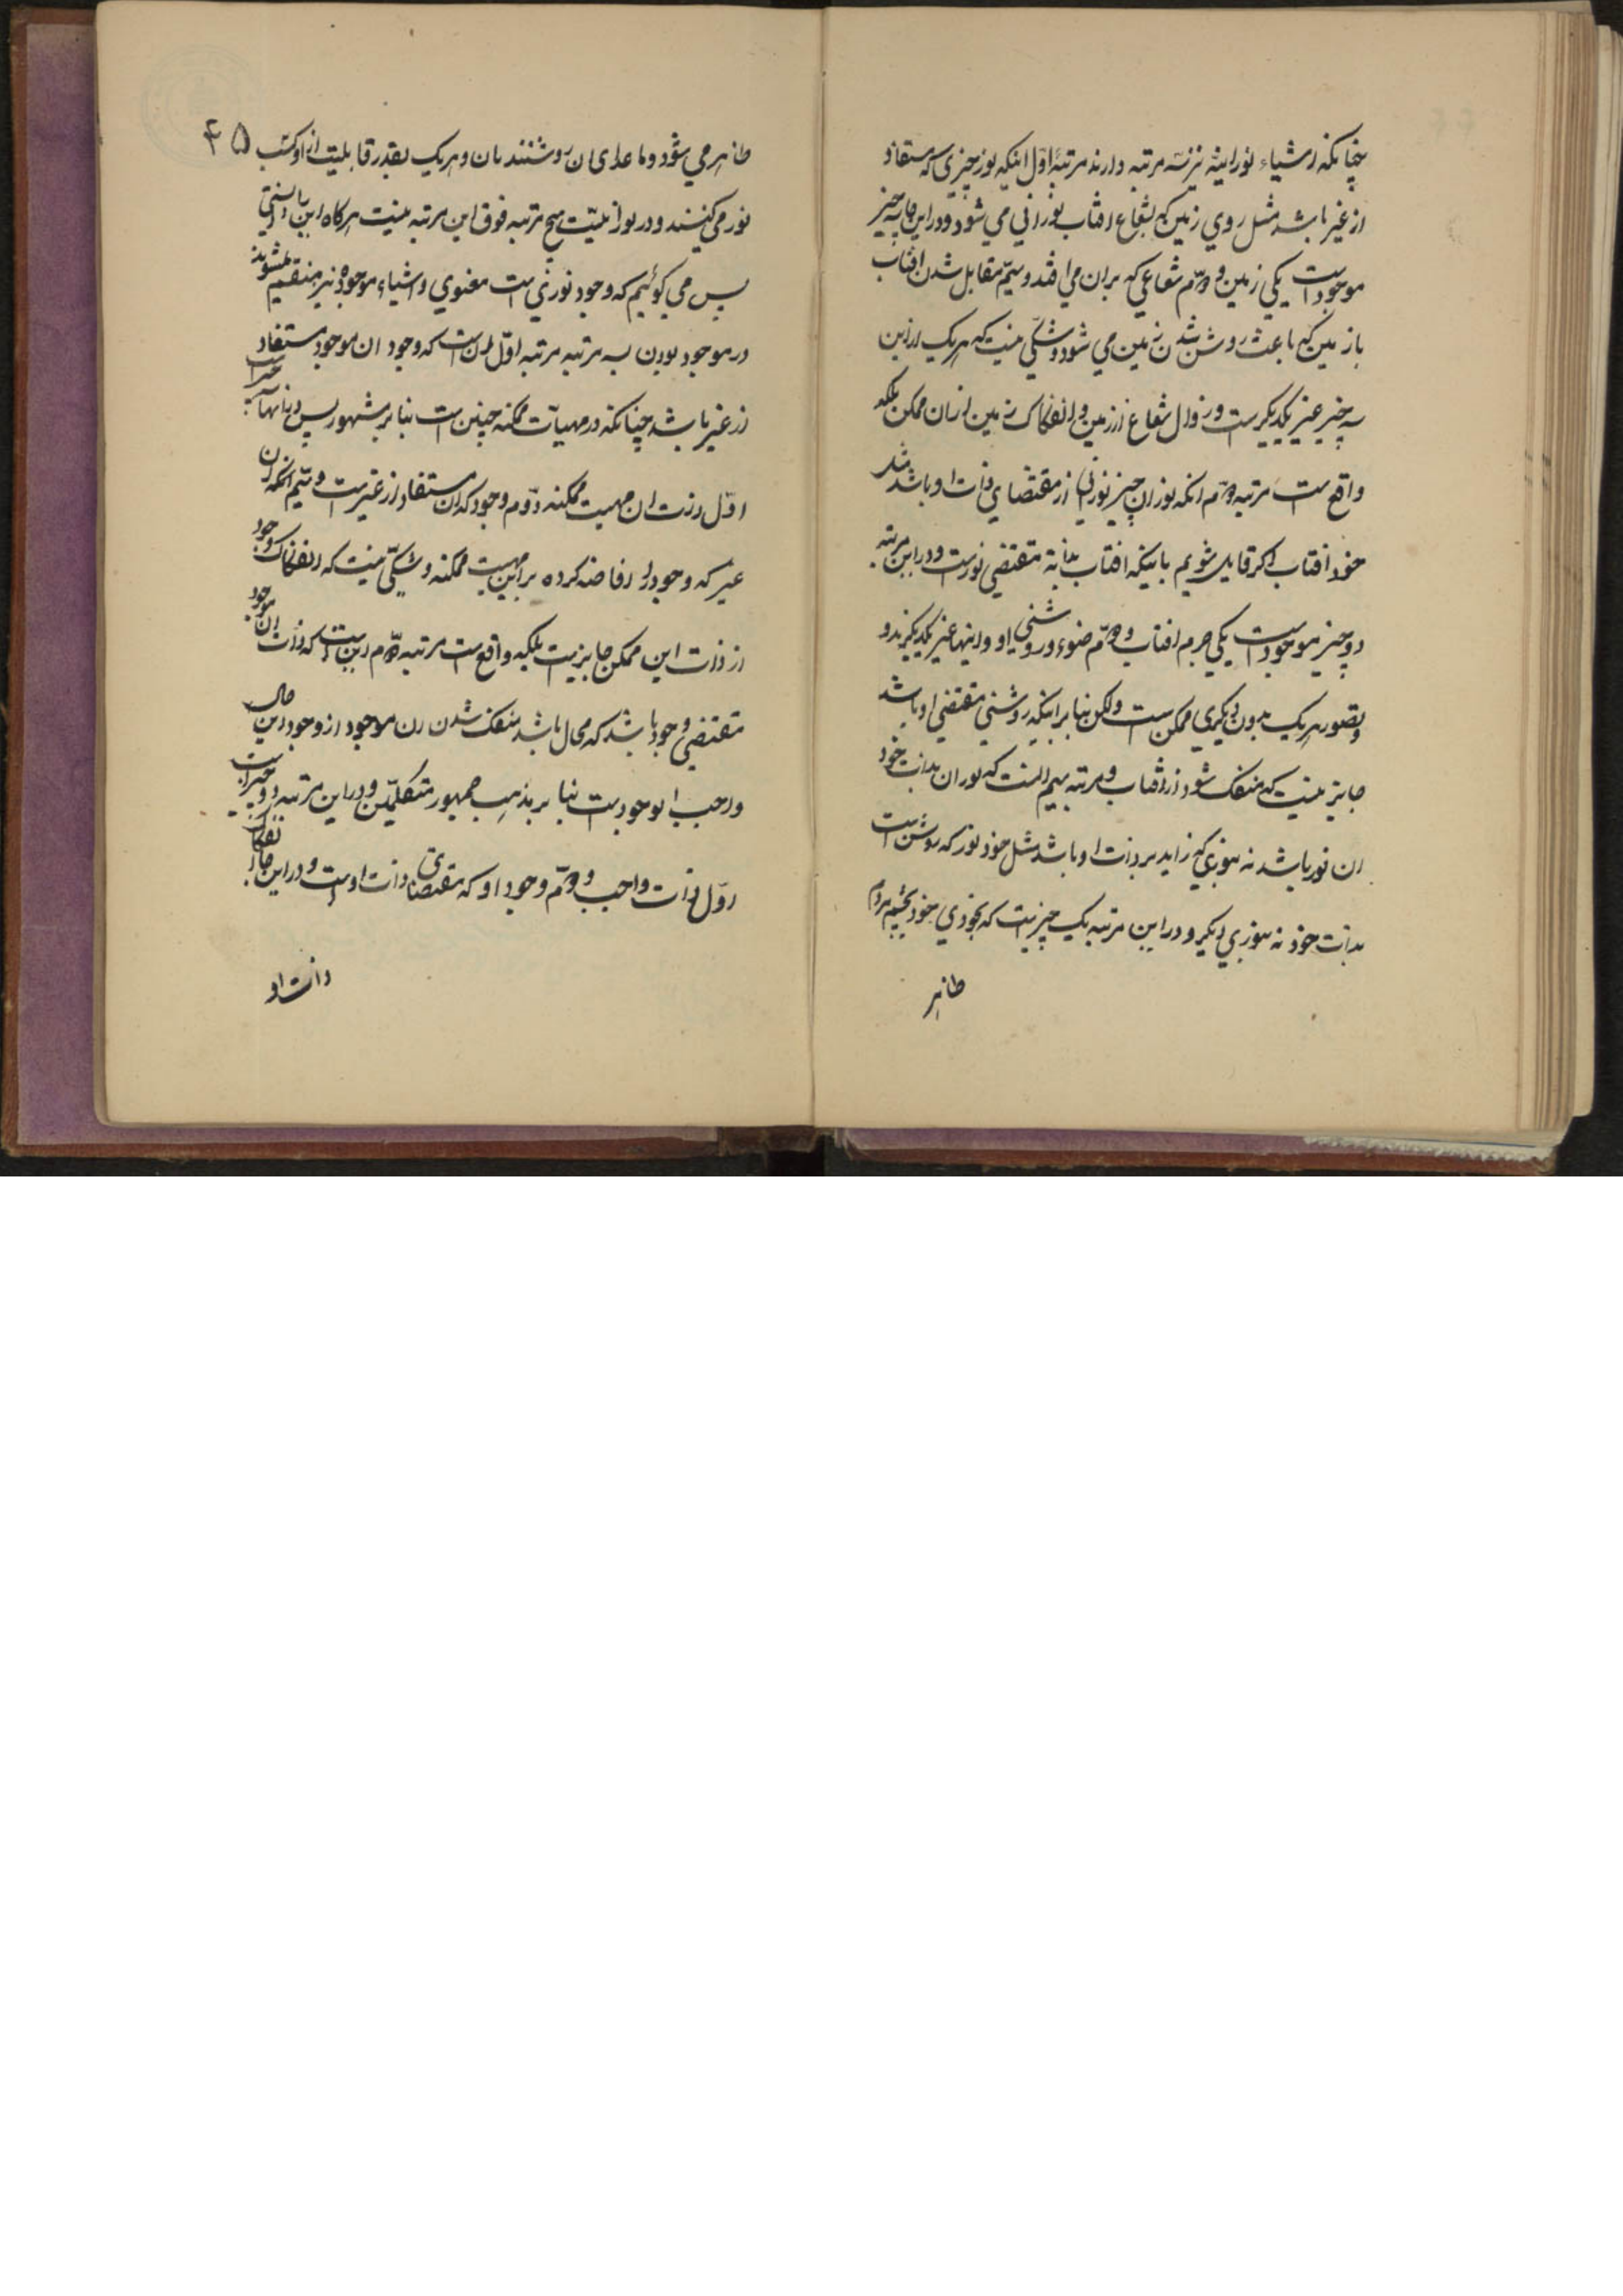 چنانکه اشیاء نورانیه نیز سه مرتبه دارند مرتبهٔ اول اینکه نور چیزی که مستفاد
از غیر باشد مثل روی زمین که بشعاع افتاب نورانی می شود و در این جا سه چیز
موجود است یکی زمین و دوّم شعاعی که بر ان می افتد و سیّم مقابل شدن افتاب
با زمین که باعث روشن شدن زمین می شود و شکّی نیست که هر یک از این
سه چیز غیر یکدیگرست و زوال شعاع از زمین و انفکاک زمین از ان ممکن بلکه
واقع ست مرتبه دوّم انکه نور ان چیز نورانی از مقتضای ذات او باشد مثل
خود افتاب اگر قایل شویم باینکه افتاب بذاته مقتضی نورست و در این مرتبه
دو چیز موجود است یکی جرم افتاب و دوّم ضوء و روشنی او و اینها غیر یکدیگرند و
تصور هر یک بدون دیگری ممکن ست ولکن بنا بر اینکه روشنی مقتضی او باشد
جایز نیست که منفک شود از افتاب و مرتبه سیم انست که نور ان بذات خود
ان نور باشد نه بنوری که زاید بر ذات او باشد مثل خود نور که روشن است
بذات خود نه بنوری دیگر و در این مرتبه یک چیزیست که بخودی خود بچشم مردم
ظاهر
۴۵
ظاهر می شود و ما عدای ان روشنند بان و هر یک بقدر قابلیت از او کسب
نور می کنند و در نورانیّت هیچ مرتبه فوق این مرتبه نیست هرگاه این را دانستی
پس می گوئیم که وجود نوری است معنوی و اشیاء موجوده نیز منقسم میشوند
در موجود بودن بسه مرتبه مرتبه اوّل انست که وجود ان موجود مستفاد
از غیر باشد چنانکه در مهیّات ممکنه چنین است بنا بر مشهور پس
اوّل ذات ان مهیت ممکنه دوّم وجود که ان مستفاد از غیر است و سیّم انکه ان
غیر که وجود را افاضه کرده بر این مهیت ممکنه و شکّی نیست که انفکاک وجود
از ذات این ممکن جایزیست بلکه واقع ست مرتبه دوّم این است که ذات ان موجود
مقتضی وجود باشد که محال باشد منفک شدن ان موجود از وجود و این حال
واجب الوجود ست بنا بر مذهب جمهور متکلمّین و در این مرتبه دو چیز است
اوّل ذات واجب و دوّم وجود او که مقتضای ذات اوست و در این جا انفکاک
ذات او